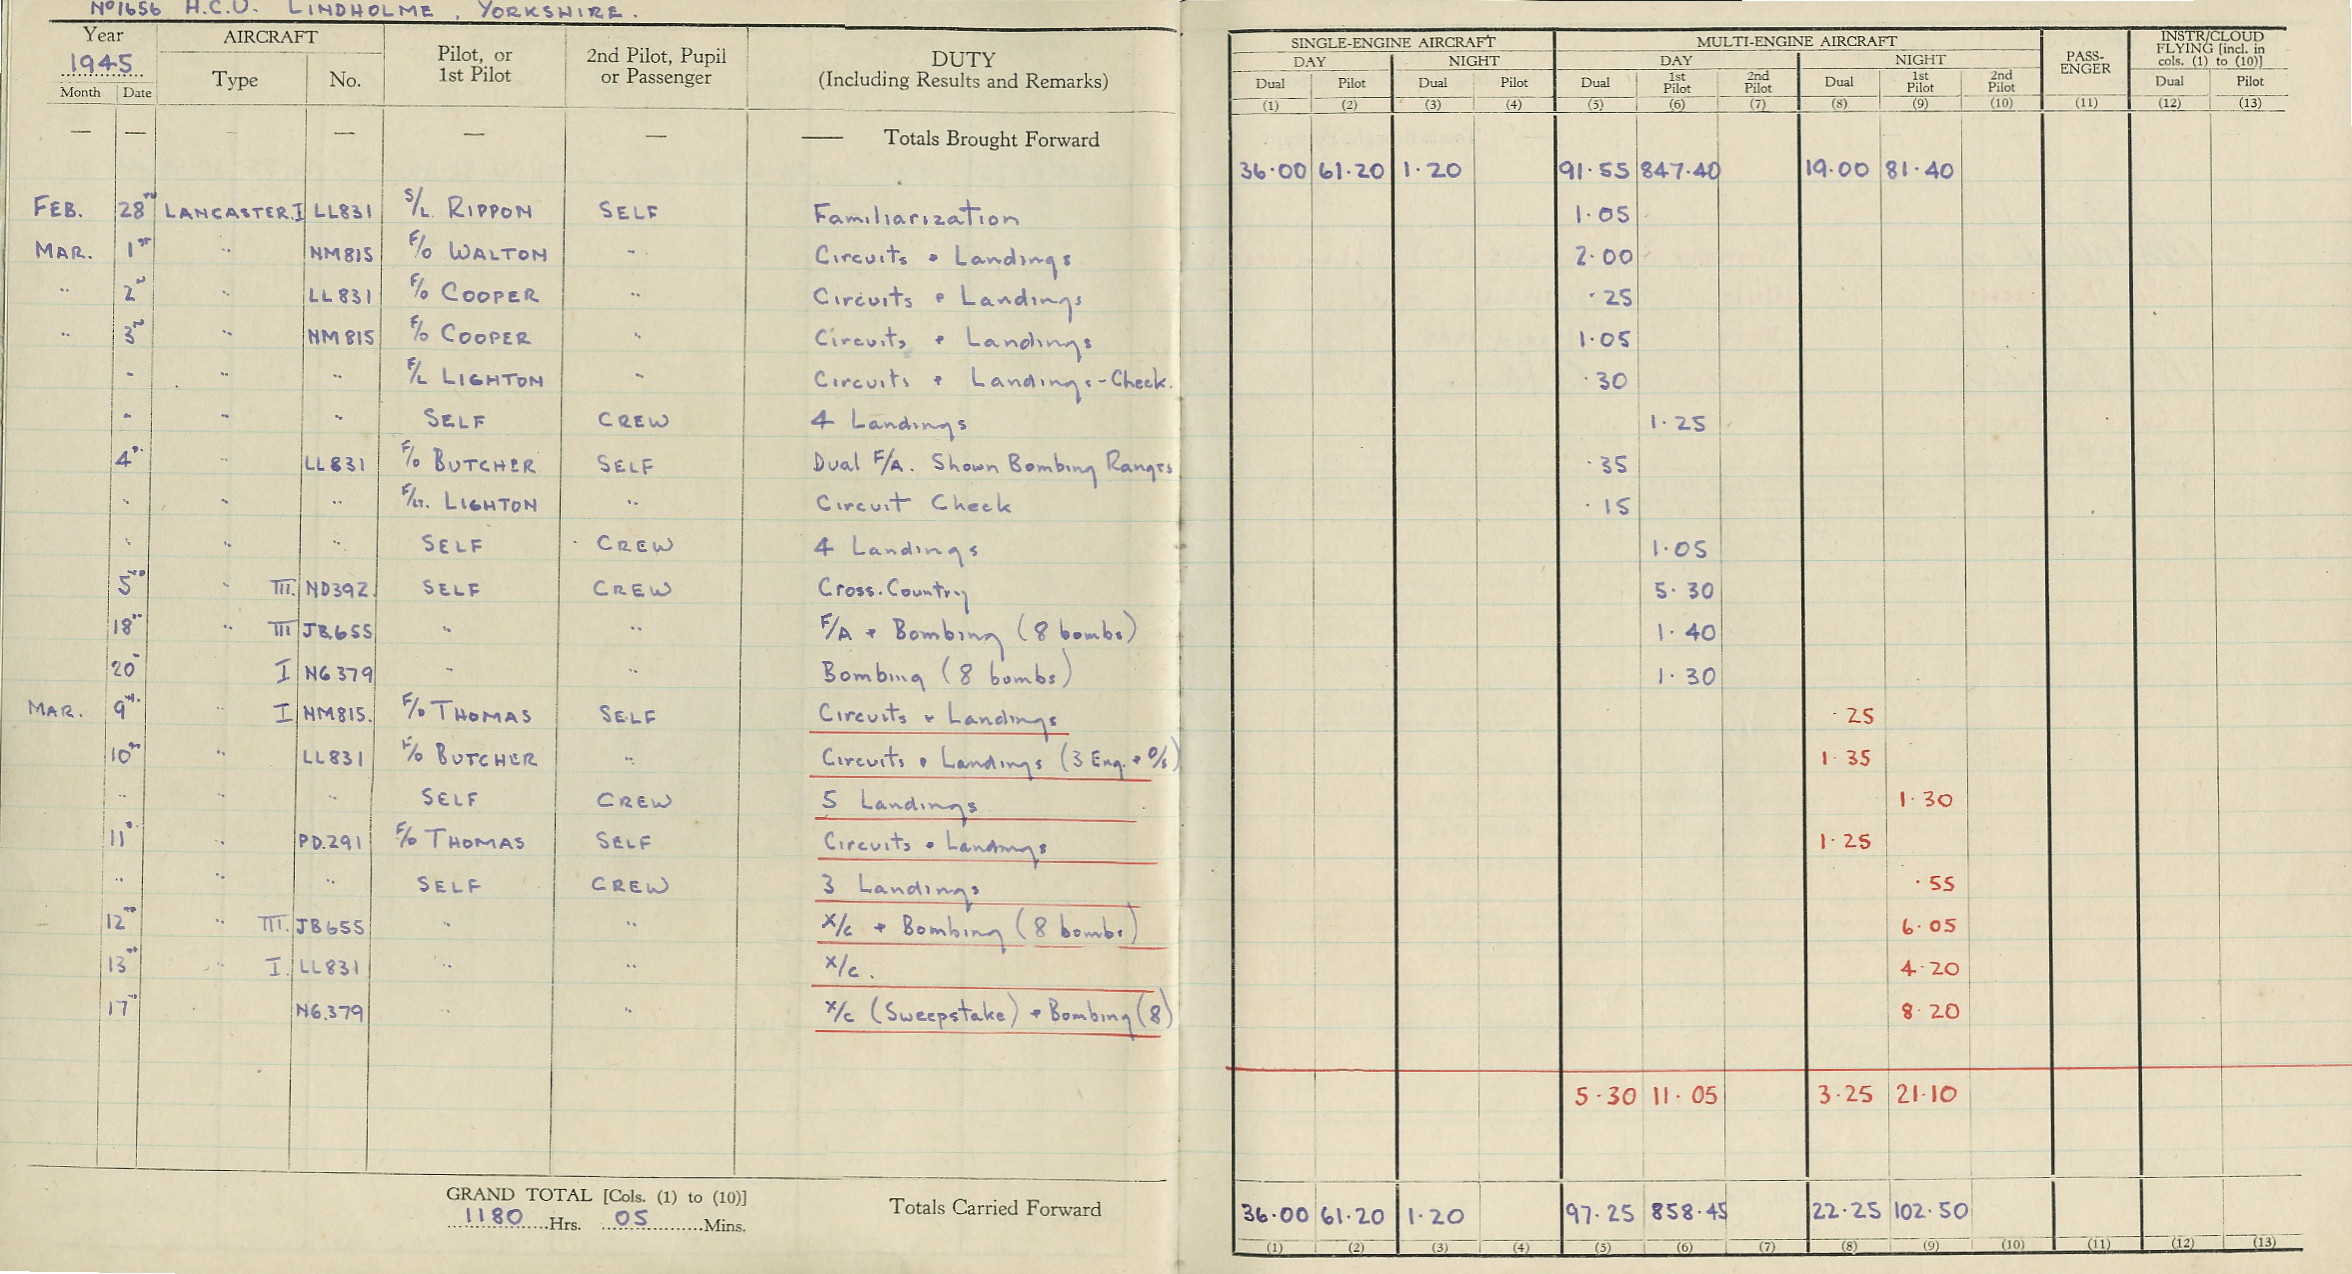 No 1656 H.C.U. LINDHOLME, YORKSHIRE.
Year 1945 AIRCRAFT Pilot, or 1st Pilot 2nd Pilot, Pupil or Passenger DUTY (Including Results and Remarks) SINGLE-ENGINE AIRCRAFT MULTI-ENGINE AIRCRAFT PASS-ENGER INSTR/CLOUD FLYING [incl. in cols. (1) to (10)]
DAY NIGHT DAY NIGHT
Month Date Type No. Dual Pilot Dual Pilot Dual 1st Pilot 2nd Pilot Dual 1st Pilot 2nd Pilot Dual Pilot
(1) (2) (3) (4) (5) (6) (7) (8) (9) (10) (11) (12) (13)
— — — — — — — Totals Brought Forward
36.00 61.20 1.20 91.55 847.40 19.00 81.40
FEB. 28TH LANCASTER.I LL831 S/L. RIPPON SELF Familiarization 1.05
MAR. 1ST " NM815 F/O WALTON " Circuits + Landings 2.00
" 2ND " LL831 F/O COOPER " Circuits + Landings .25
" 3RD " NM815 F/O COOPER " Circuits + Landings 1.05
" " " F/L LIGHTON " Circuits + Landings-Check. .30
" " " SELF CREW 4 Landings 1.25
4TH " LL831 F/O BUTCHER SELF Dual F/A. Shown Bombing Ranges .35
" " " F/LT. LIGHTON " Circuit Check .15
" " " SELF CREW 4 Landings 1.05
5TH " III. ND392. SELF CREW Cross.Country 5.30
18TH " III JB.655 " " F/A + Bombing (8 bombs) 1.40
20TH I NG379 " " Bombing (8 bombs) 1.30
MAR. 9TH. " I NM815. F/O THOMAS SELF Circuits + Landings .25
10TH " LL831 F/O BUTCHER " Circuits + Landings (3 Eng. + O/S) 1.35
" " SELF CREW 5 Landings 1.30
11TH " PD.291 F/O THOMAS SELF Circuits + Landings 1.25
" " " SELF CREW 3 Landings .55
12TH " III. JB655 " " X/C + Bombing (8 bombs) 6.05
13TH " I. LL831 " " X/C. 4.20
17TH NG.379 " " X/C (Sweepstake) + Bombing (8) 8.20
5.30 11.05 3.25 21.10
GRAND TOTAL [Cols. (1) to (10)]
1180 Hrs. 05 Mins.
Totals Carried Forward 36.00 61.20 1.20 97.25 858.45 22.25 102.50
(1) (2) (3) (4) (5) (6) (7) (8) (9) (10) (11) (12) (13)